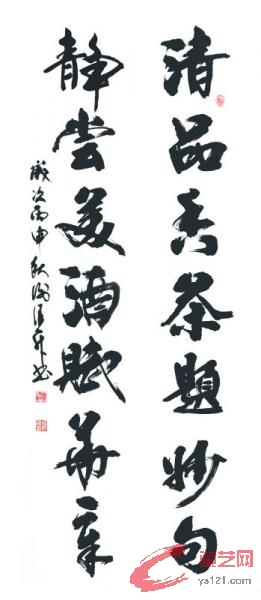 清品香茶題妙句
静尝美酒赋華章
歲次丙申秋
艺网
ys121.com